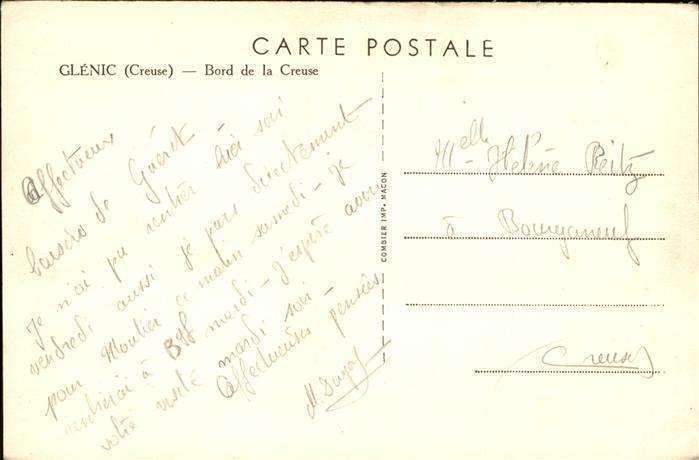 CARTE POSTALE
GLÉNIC (Creuse) — Bord de la Creuse
Affectueux
baisers de Guéret
Je n'ai pu rentrer hier soir
vendredi aussi je pars directement
pour Moutier ce matin samedi - je
rentrerai à Bgf mardi - J'espère avoir
votre visite mardi soir -
Affectueuses pensées
COMBIER IMP. MACON
Melle Helène Reitz
à Bourganeuf
Creuse